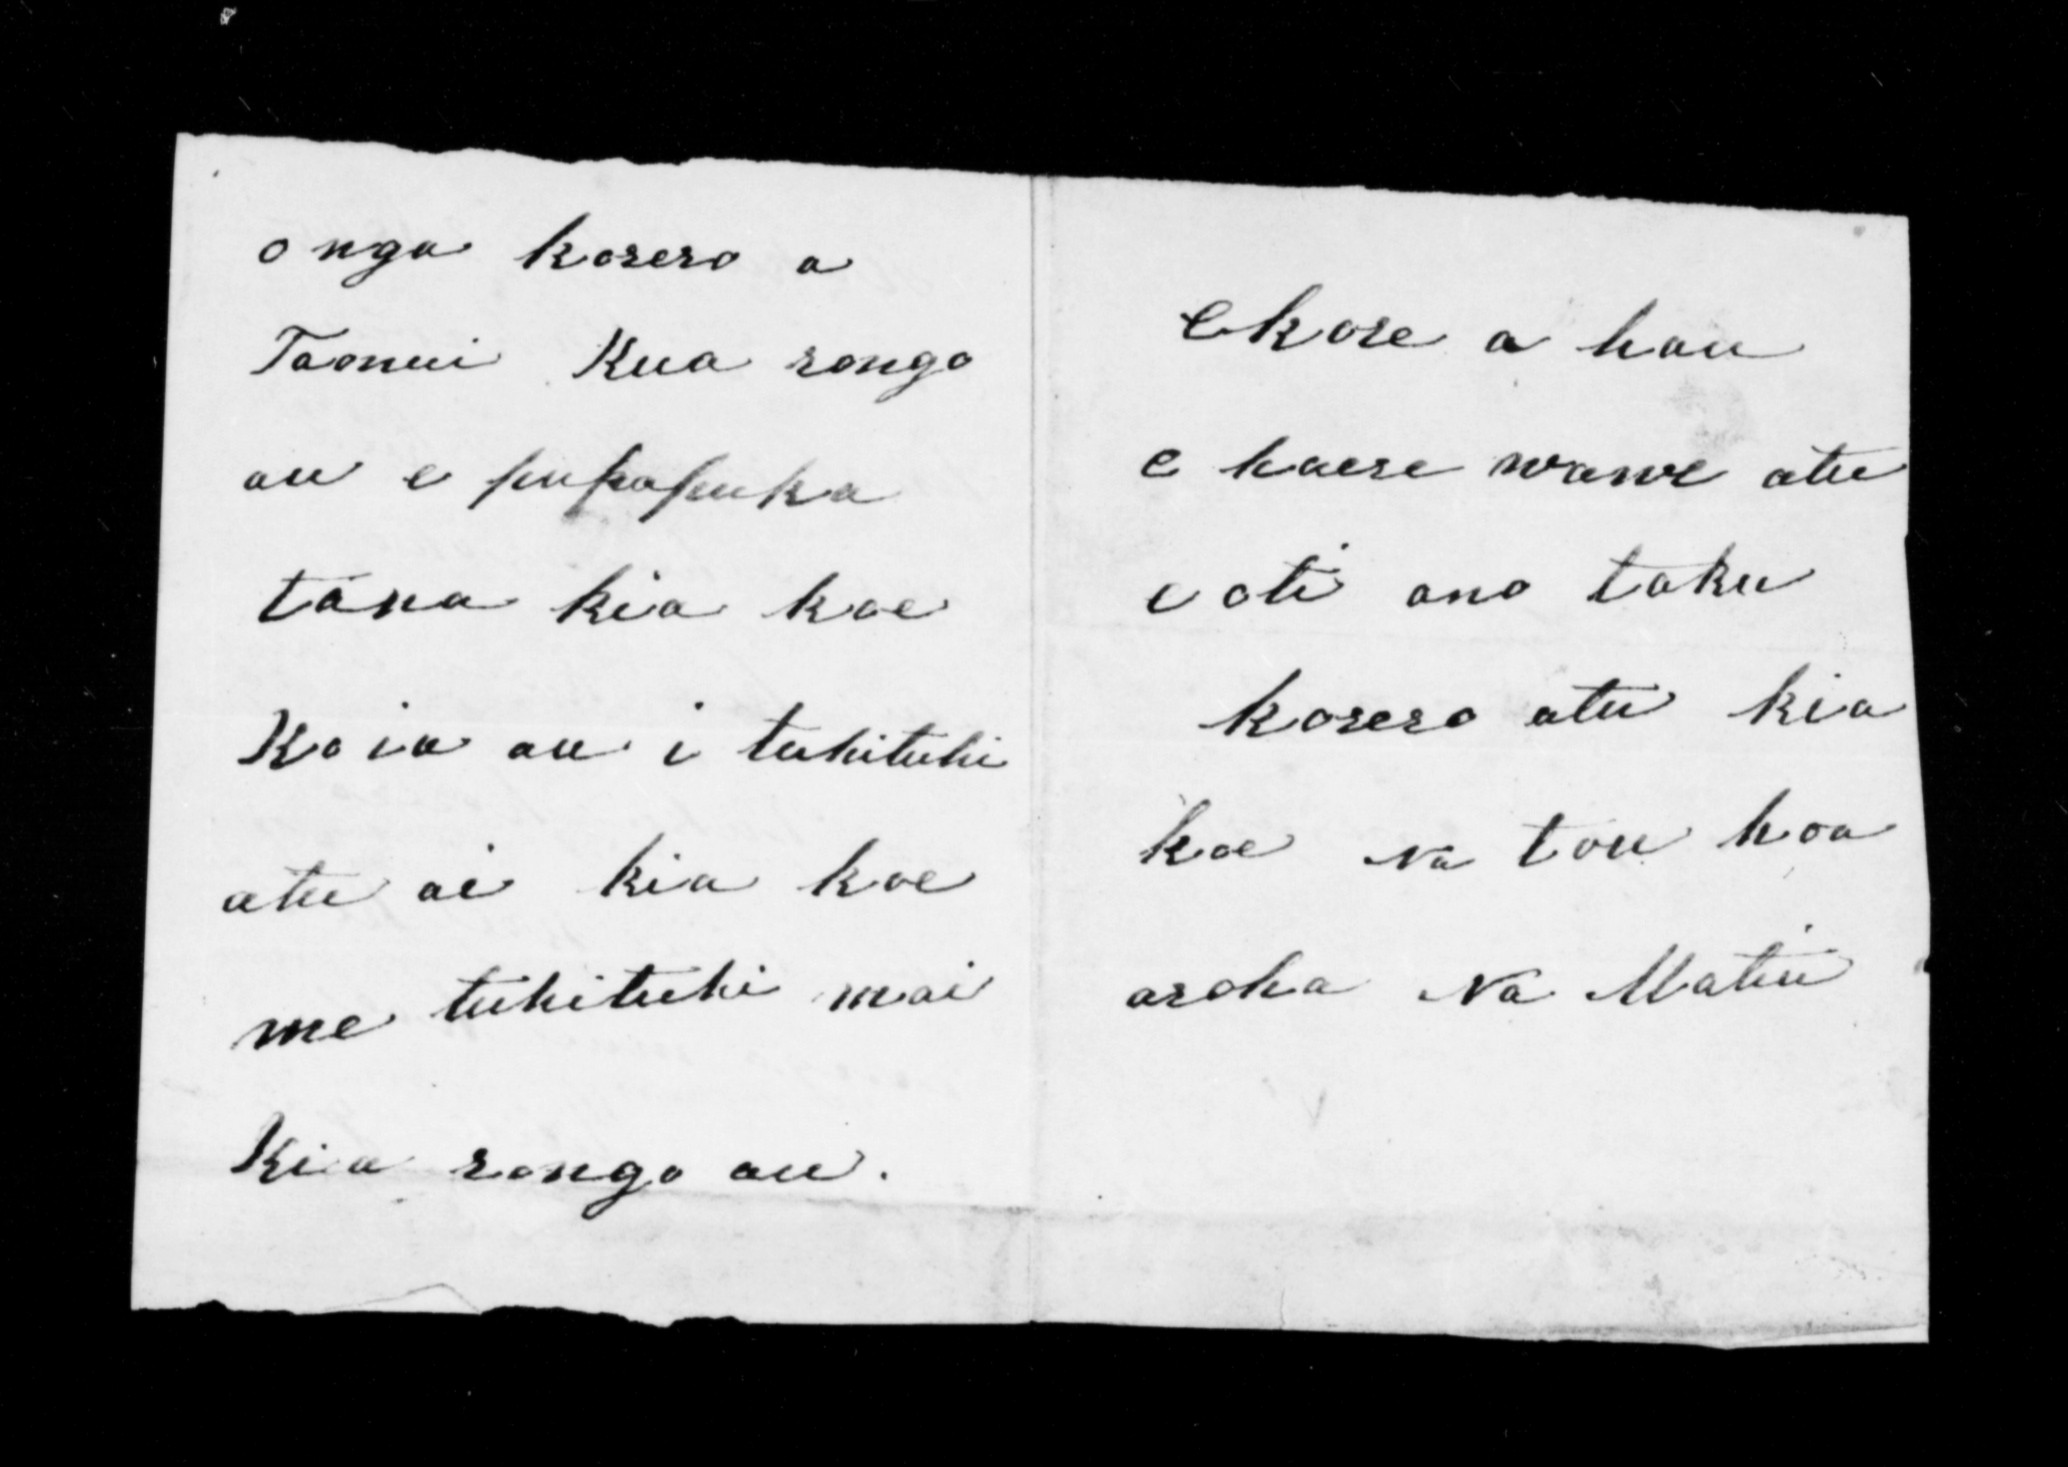 o nga korero a
Taonui Kua rongo
au e pukapuka
tana kia koe
Ko ia au i tuhituhi
atu ai kia koe
me tuhituhi mai
Kia rongo au.
Ekore a hau
e haere wawe atu
e oti ano taku
korero atu kia
koe Na tou hoa
aroha Na Matiu